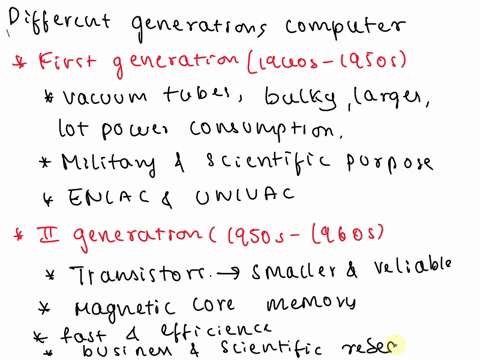 Different generations computer
* First generation (1940s-1950s)
* vacuum tubes, bulky, larger,
lot power consumption.
* Military & scientific purpose
* ENIAC & UNIVAC
* II generation (1950s-1960s)
* Transistors. → smaller & reliable
* Magnetic core memory
* fast & efficience
* business & scientific reser